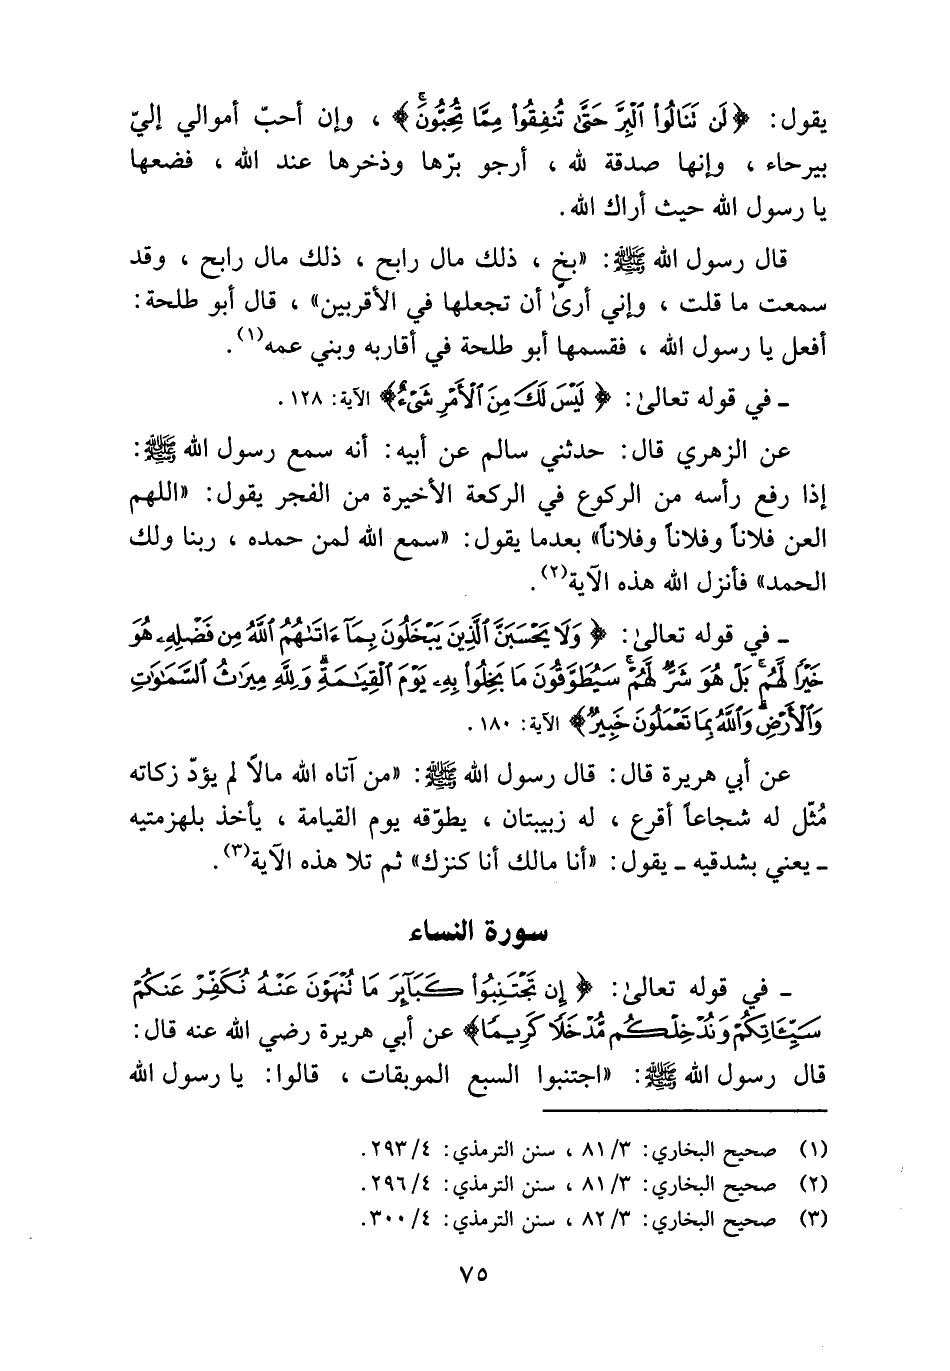 يقول: ﴿لَن نَنَالُوا۟ ٱلْبِرَّ حَتَّىٰ تُنفِقُوا۟ مِمَّا تُحِبُّونَۚ﴾ ، وإن أحبّ أموالي إليّ
بيرحاء ، وإنها صدقة لله ، أرجو برّها وذخرها عند الله ، فضعها
يا رسول الله حيث أراك الله.
قال رسول الله ﷺ: «بخ ، ذلك مال رابح ، ذلك مال رابح ، وقد
سمعت ما قلت ، وإني أرىٰ أن تجعلها في الأقربين» ، قال أبو طلحة:
أفعل يا رسول الله ، فقسمها أبو طلحة في أقاربه وبني عمه(١).
ـ في قوله تعالىٰ: ﴿لَيْسَ لَكَ مِنَ ٱلْأَمْرِ شَىْءٌ﴾ الآية: ١٢٨.
عن الزهري قال: حدثني سالم عن أبيه: أنه سمع رسول الله ﷺ:
إذا رفع رأسه من الركوع في الركعة الأخيرة من الفجر يقول: «اللهم
العن فلاناً وفلاناً وفلاناً» بعدما يقول: «سمع الله لمن حمده ، ربنا ولك
الحمد» فأنزل الله هذه الآية(٢).
ـ في قوله تعالىٰ: ﴿وَلَا يَحْسَبَنَّ ٱلَّذِينَ يَبْخَلُونَ بِمَآ ءَاتَىٰهُمُ ٱللَّهُ مِن فَضْلِهِۦ هُوَ
خَيْرًا لَّهُمۖ بَلْ هُوَ شَرٌّ لَّهُمْۖ سَيُطَوَّقُونَ مَا بَخِلُوا۟ بِهِۦ يَوْمَ ٱلْقِيَٰمَةِۗ وَلِلَّهِ مِيرَٰثُ ٱلسَّمَٰوَٰتِ
وَٱلْأَرْضِۗ وَٱللَّهُ بِمَا تَعْمَلُونَ خَبِيرٌ﴾ الآية: ١٨٠.
عن أبي هريرة قال: قال رسول الله ﷺ: «من آتاه الله مالاً لم يؤدّ زكاته
مُثّل له شجاعاً أقرع ، له زبيبتان ، يطوّقه يوم القيامة ، يأخذ بلهزمتيه
ـ يعني بشدقيه ـ يقول: «أنا مالك أنا كنزك» ثم تلا هذه الآية(٣).
سورة النساء
ـ في قوله تعالىٰ: ﴿إِن تَجْتَنِبُوا۟ كَبَآئِرَ مَا تُنْهَوْنَ عَنْهُ نُكَفِّرْ عَنكُمْ
سَيِّـَٔاتِكُمْ وَنُدْخِلْكُم مُّدْخَلًا كَرِيمًا﴾ عن أبي هريرة رضي الله عنه قال:
قال رسول الله ﷺ: «اجتنبوا السبع الموبقات ، قالوا: يا رسول الله
(١) صحيح البخاري: ٣/ ٨١ ، سنن الترمذي: ٤/ ٢٩٣.
(٢) صحيح البخاري: ٣/ ٨١ ، سنن الترمذي: ٤/ ٢٩٦.
(٣) صحيح البخاري: ٣/ ٨٢ ، سنن الترمذي: ٤/ ٣٠٠.
٧٥